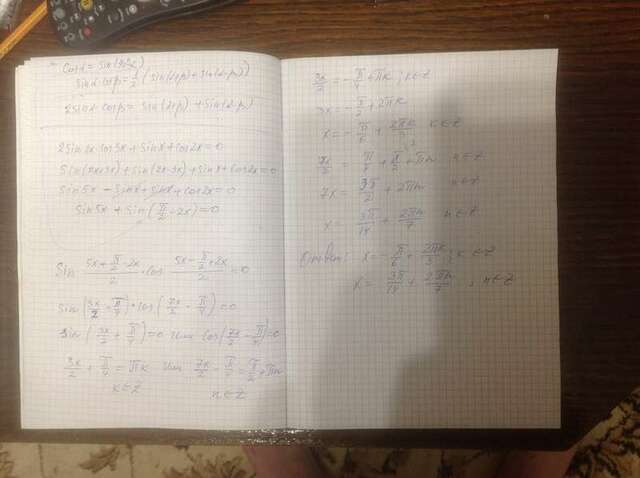 Cosα = sin(90-α)
sinα·cosβ = 1/2 (sin(α+β) + sin(α-β))
2sinα·cosβ = sin(α+β) + sin(α-β)
2sin2x·cos3x + sinx + cos2x = 0
sin(2x+3x) + sin(2x-3x) + sinx + cos2x = 0
sin5x - sinx + sinx + cos2x = 0
sin5x + sin(π/2 - 2x) = 0
Sin (5x + π/2 - 2x)/2 · cos (5x - π/2 + 2x)/2 = 0
sin(3x/2 + π/4) · cos(7x/2 - π/4) = 0
sin(3x/2 + π/4) = 0 или cos(7x/2 - π/4) = 0
3x/2 + π/4 = πk или 7x/2 - π/4 = π/2 + πn
k∈Z n∈Z
3x/2 = -π/4 + πk ; k∈Z
3x = -π/2 + 2πk
x = -π/6 + 2πk/3 k∈Z
7x/2 = π/4 + π/2 + πn n∈Z
7x = 3π/2 + 2πn n∈Z
x = 3π/14 + 2πn/7 n∈Z
Ответ: x = -π/6 + 2πk/3 ; k∈Z
x = 3π/14 + 2πn/7 ; n∈Z